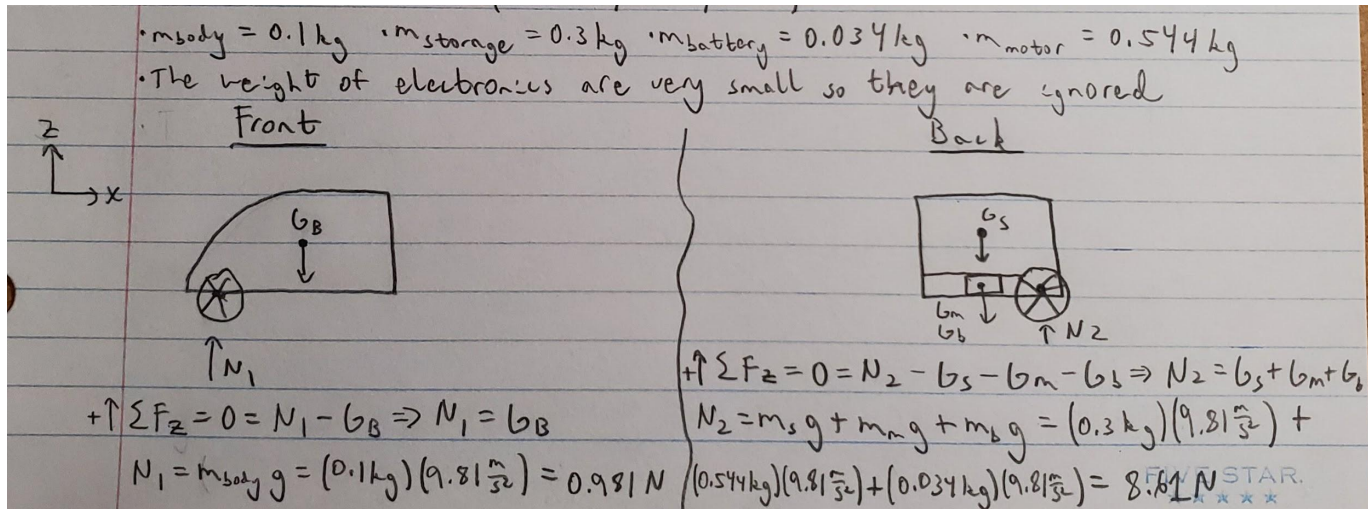 ·m body = 0.1 kg ·m storage = 0.3 kg ·m battery = 0.034 kg ·m motor = 0.544 kg
·The weight of electronics are very small so they are ignored
Front
Back
Z
X
G_B
N_1
+↑ ΣF_z = 0 = N_1 - G_B ⇒ N_1 = G_B
N_1 = m_body g = (0.1 kg)(9.81 m/s²) = 0.981 N
G_S
G_m
G_b
N2
+↑ ΣF_z = 0 = N_2 - G_s - G_m - G_b ⇒ N_2 = G_s + G_m + G_b
N_2 = m_s g + m_m g + m_b g = (0.3 kg)(9.81 m/s²) +
(0.544 kg)(9.81 m/s²) + (0.034 kg)(9.81 m/s²) = 8.61 N
FIVE STAR.